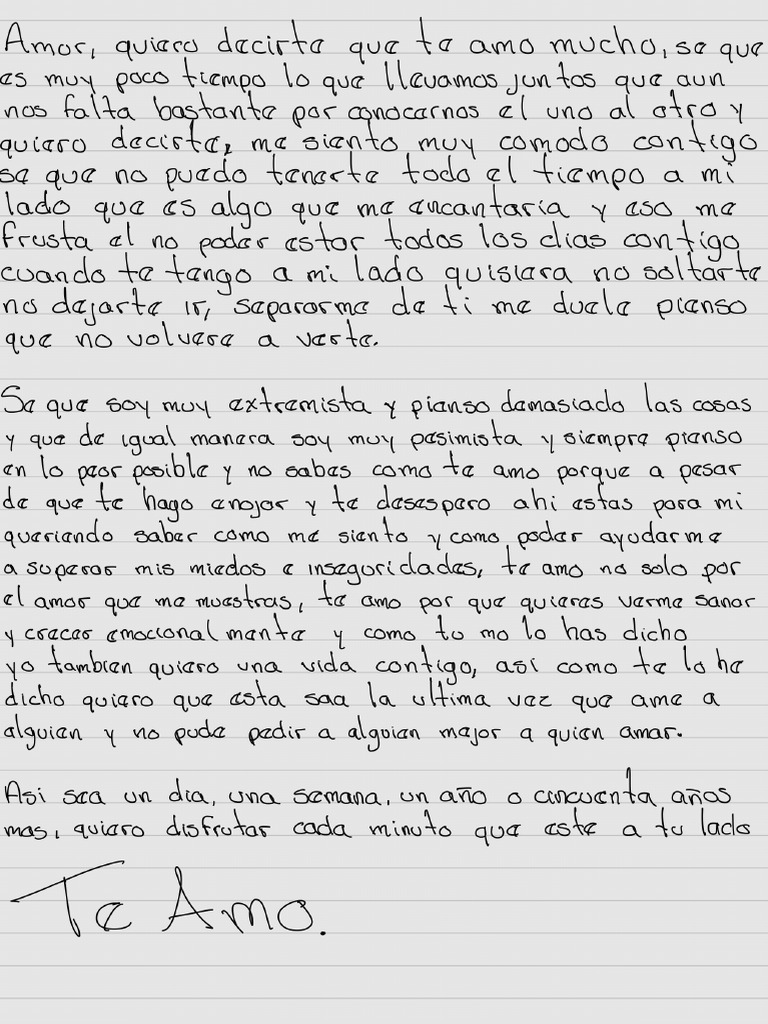 Amor, quiero decirte que te amo mucho, se que
es muy poco tiempo lo que llevamos juntos que aun
nos falta bastante por conocernos el uno al otro y
quiero decirte, me siento muy comodo contigo
se que no puedo tenerte todo el tiempo a mi
lado que es algo que me encantaria y eso me
frusta el no poder estar todos los dias contigo
cuando te tengo a mi lado quisiera no soltarte
no dejarte ir, separarme de ti me duele pienso
que no volvere a verte.
Se que soy muy extremista y pienso demasiado las cosas
y que de igual manera soy muy pesimista y siempre pienso
en lo peor posible y no sabes como te amo porque a pesar
de que te hago enojar y te desespero ahi estas para mi
queriendo saber como me siento y como poder ayudarme
a superar mis miedos e inseguridades, te amo no solo por
el amor que me muestras, te amo por que quieres verme sanar
y crecer emocional mente y como tu mo lo has dicho
yo tambien quiero una vida contigo, asi como te lo he
dicho quiero que esta sea la ultima vez que ame a
alguien y no pude pedir a alguien mejor a quien amar.
Asi sea un dia, una semana, un año o cincuenta años
mas, quiero disfrutar cada minuto que este a tu lado
Te Amo.